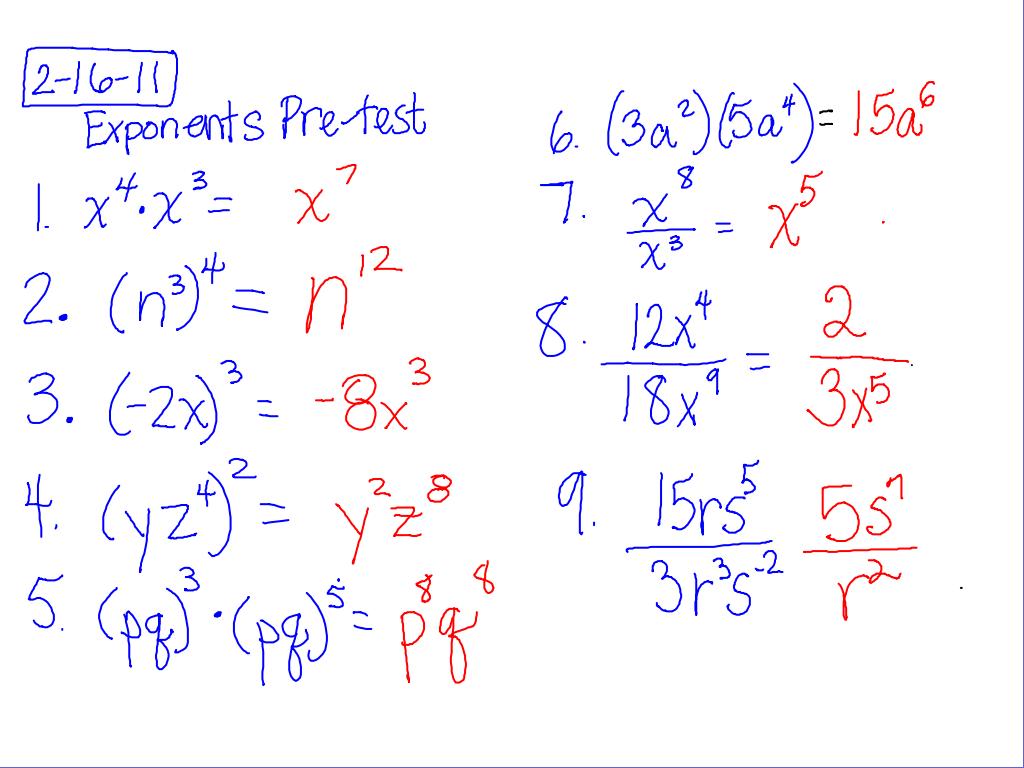 2-16-11
Exponents Pre-test
1. x⁴·x³= x⁷
2. (n³)⁴ = n¹²
3. (-2x)³ = -8x³
4. (yz⁴)² = y²z⁸
5. (pq)³·(pq)⁵ = p⁸q⁸
6. (3a²)(5a⁴)= 15a⁶
7. x⁸/x³ = x⁵
8. 12x⁴/18x⁹ = 2/3x⁵
9. 15rs⁵/3r³s⁻² 5s⁷/r²